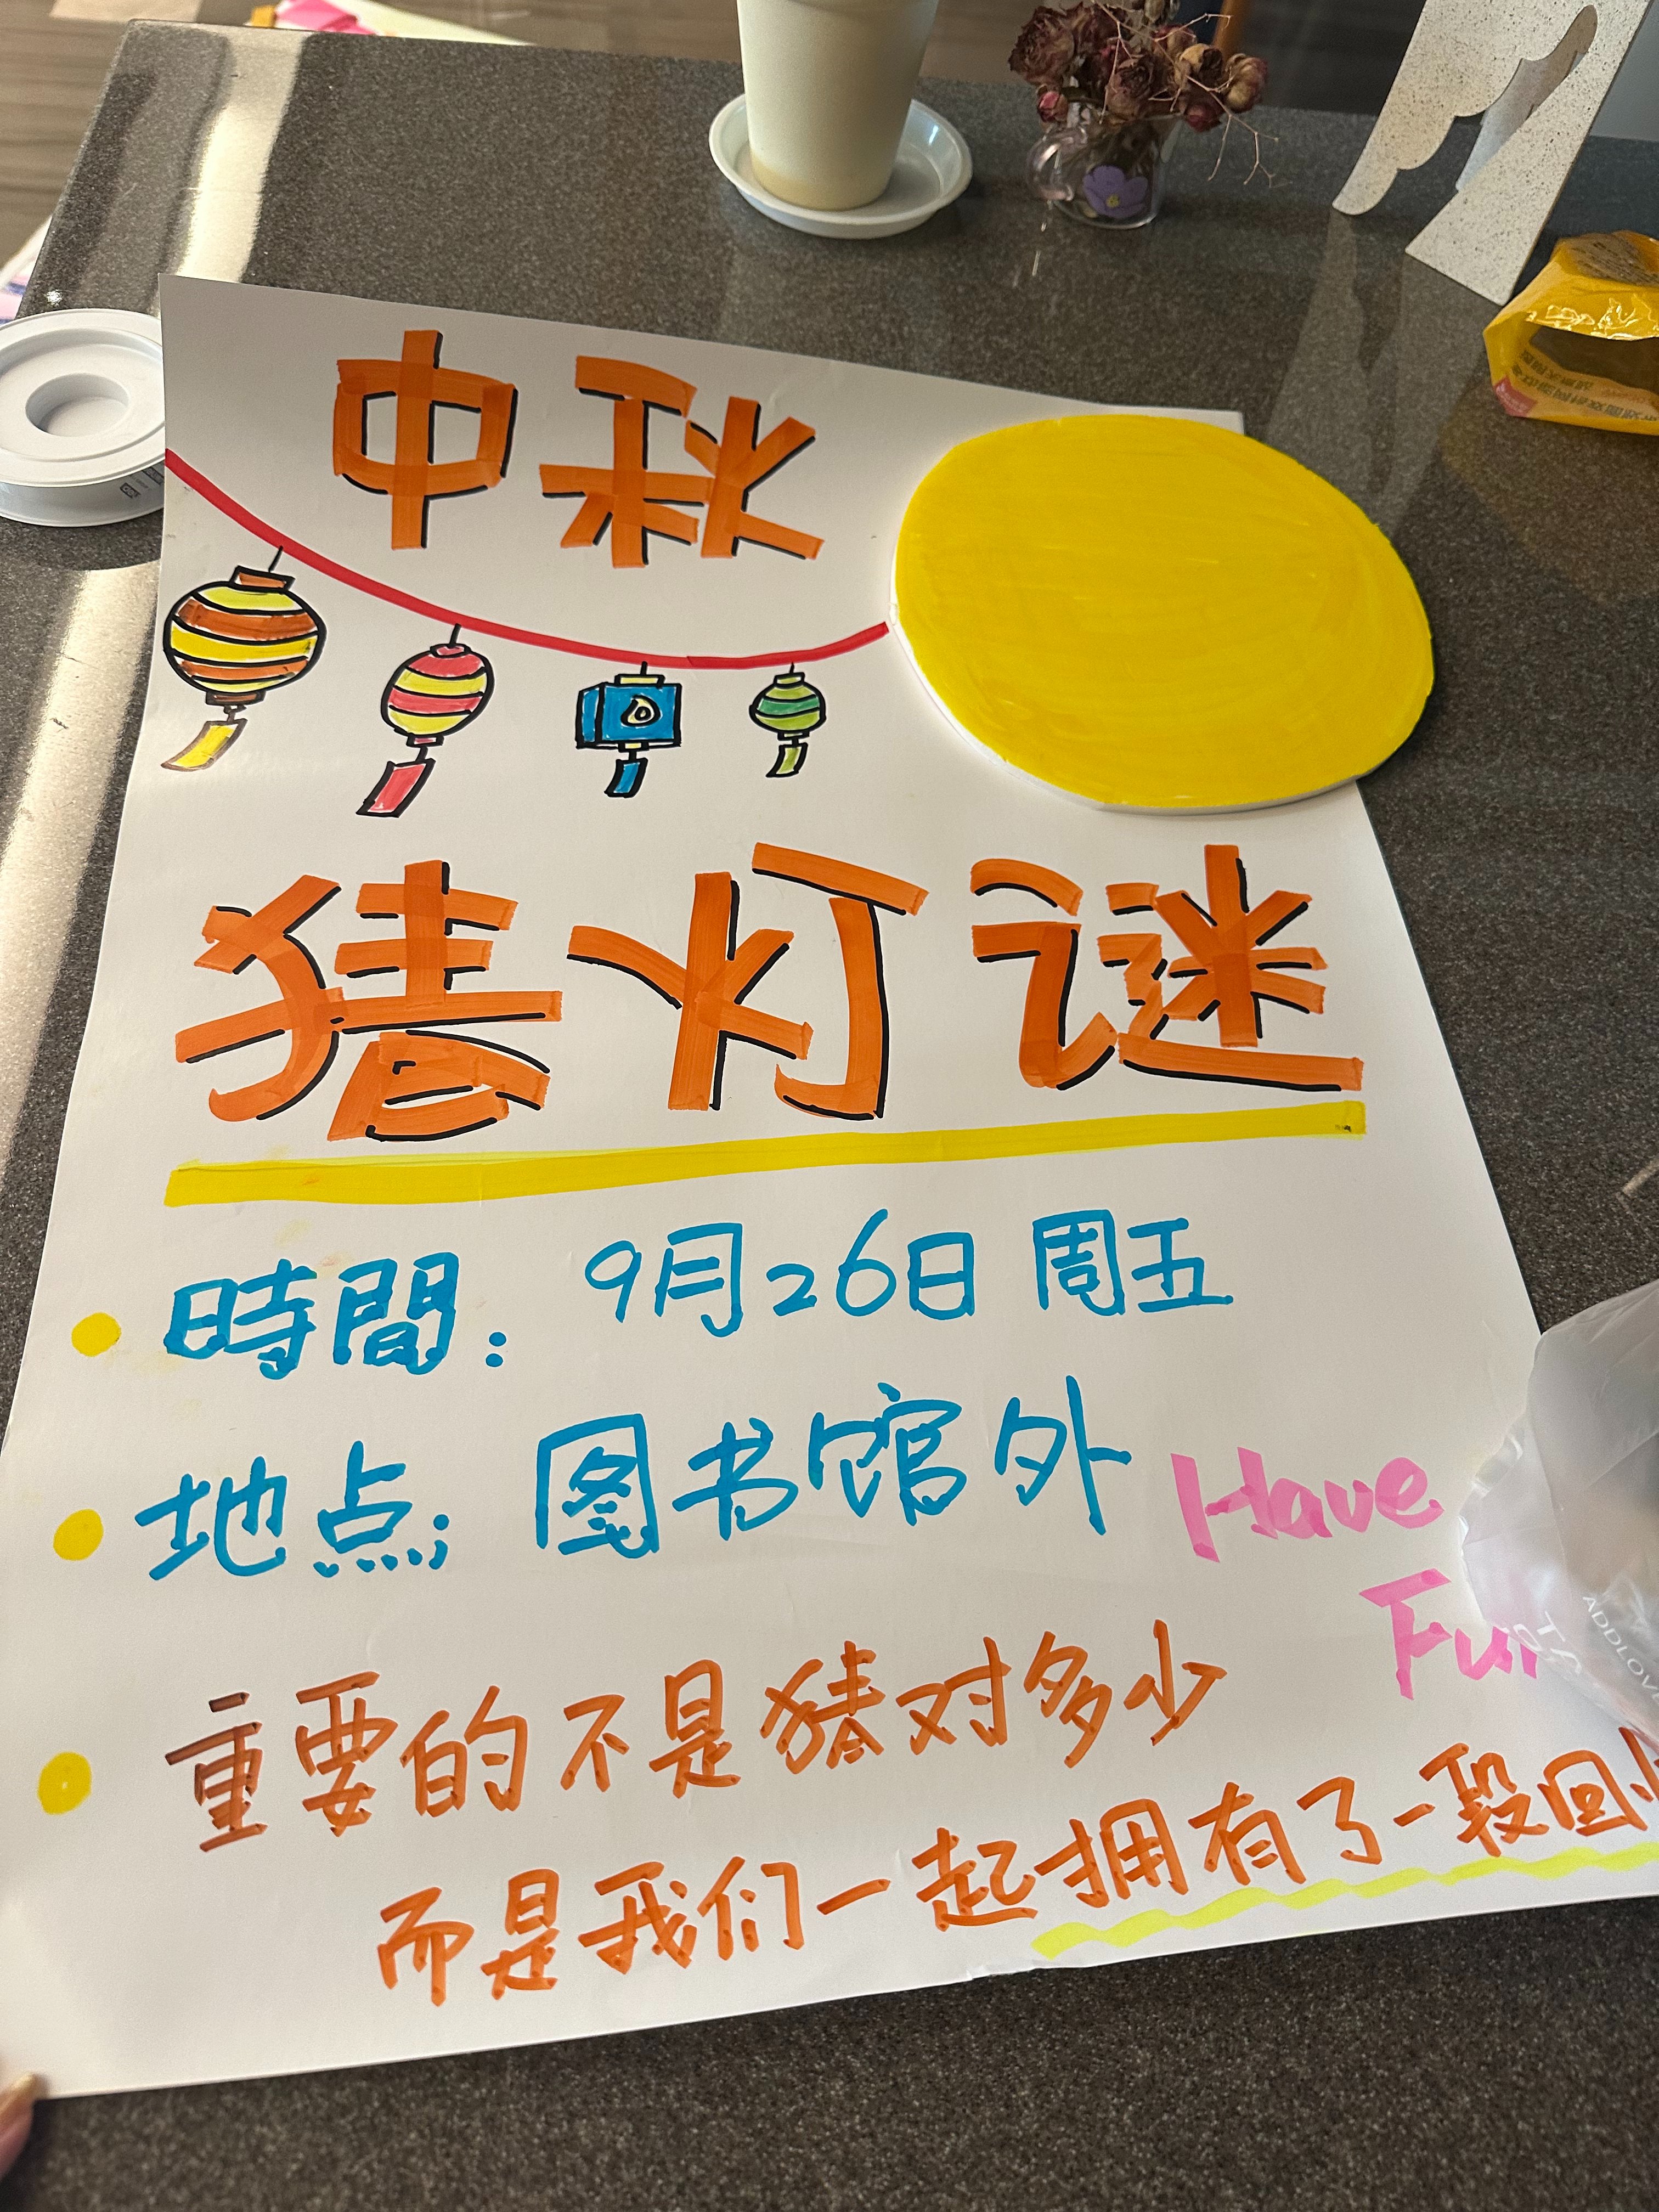 中秋
猜灯谜
時間: 9月26日 周五
地点: 图书馆外
Have
Fun
重要的不是猜对多少
而是我们一起拥有了一段回忆
ADDLOVE